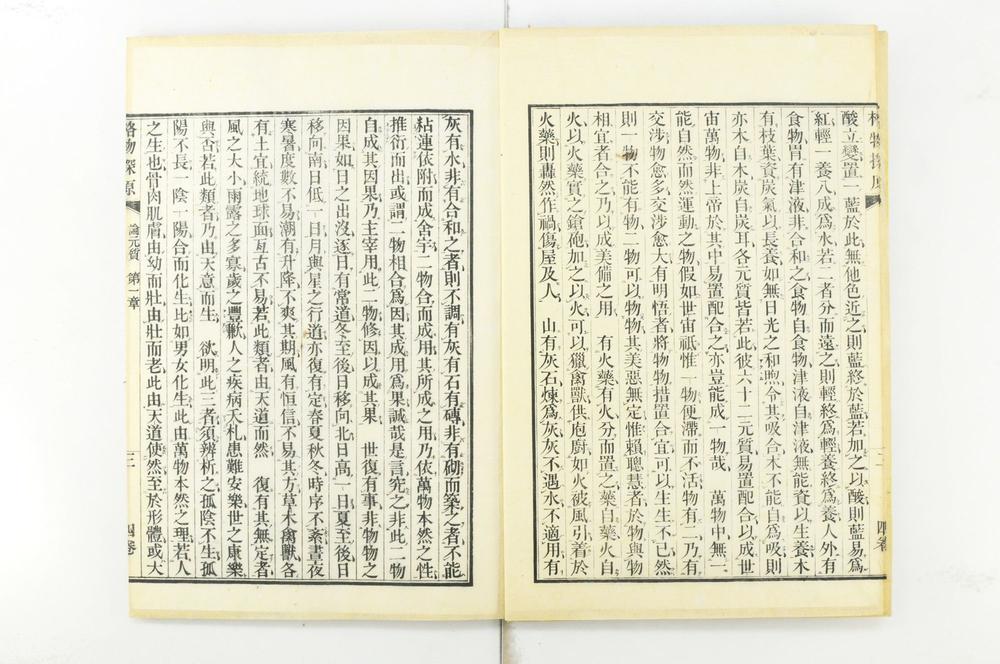 格物探原
二
四卷
酸立變置一藍於此無他色近之則藍終於藍若加之以酸則藍易爲
紅輕一養八成爲水若二者分而遠之則輕終爲輕養終爲養人外有
食物胃有津液非合和之食物自食物津液自津液無能資以生養木
有枝葉資炭氣以長養如無日光之和煦令其吸合木不能自爲吸則
亦木自木炭自炭耳各元質皆若此彼六十二元質易置配合以成世
宙萬物非上帝於其中易置配合之亦豈能成一物哉 萬物中無一
能自然而然運動之物假如世宙祇惟一物便滯而不活物有二乃有
交涉物愈多交涉愈大有明悟者將物物措置合宜可以生生不已然
則一物不能有物二物可以物物其美惡無定惟賴聰慧者於物與物
相宜者合之乃以成美備之用 有火藥有火分而置之藥自藥火自
火以火藥實之鎗砲加之以火可以獵禽獸供庖廚如火被風引着於
火藥則轟然作禍傷屋及人 山有灰石煉爲灰灰不遇水不適用有
灰有水非有合和之者則不調有灰有石有磚非有砌而築之者不能
粘連依附而成舍宇二物合而成用其所成之用乃依萬物本然之性
推衍而出或謂二物相合爲因其成用爲果誠哉是言究之非此二物
自成其因果乃主宰用此二物修因以成其果 世復有事非物物之
因果如日之出沒逐日有常道冬至後日移向北日高一日夏至後日
移向南日低一日月與星之行道亦復有定春夏秋冬時序不紊晝夜
寒暑度數不易潮有升降不爽其期風有恒信不易其方草木禽獸各
有土宜統地球面亙古不易若此類者由天道而然 復有其無定者
風之大小雨露之多寡歲之豐歉人之疾病夭札患難安樂世之康樂
與否若此類者乃由天意而生 欲明此三者須辨析之孤陰不生孤
陽不長一陰一陽合而化生比如男女化生此由萬物本然之理若人
之生也骨肉肌膚由幼而壯由壯而老此由天道使然至於形體或大
格物探原
論元質 第一章
三
四卷